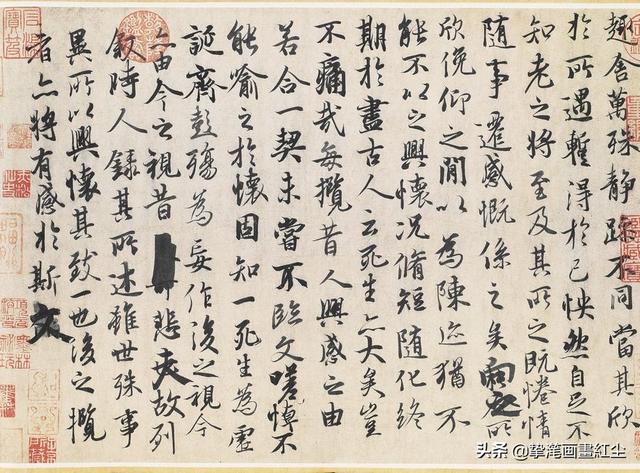 趣舍萬殊靜躁不同當其欣
於所遇蹔得於己怏然自足不
知老之將至及其所之既惓情
隨事遷感慨係之矣向之所
欣俛仰之閒以為陳迹猶不
能不以之興懷況脩短隨化終
期於盡古人云死生亦大矣豈
不痛哉每攬昔人興感之由
若合一契未嘗不臨文嗟悼不
能喻之於懷固知一死生為虛
誕齊彭殤為妄作後之視今
亦由今之視昔悲夫故列
敘時人錄其所述雖世殊事
異所以興懷其致一也後之攬
者亦將有感於斯文
头条 @挚滝画畫红尘